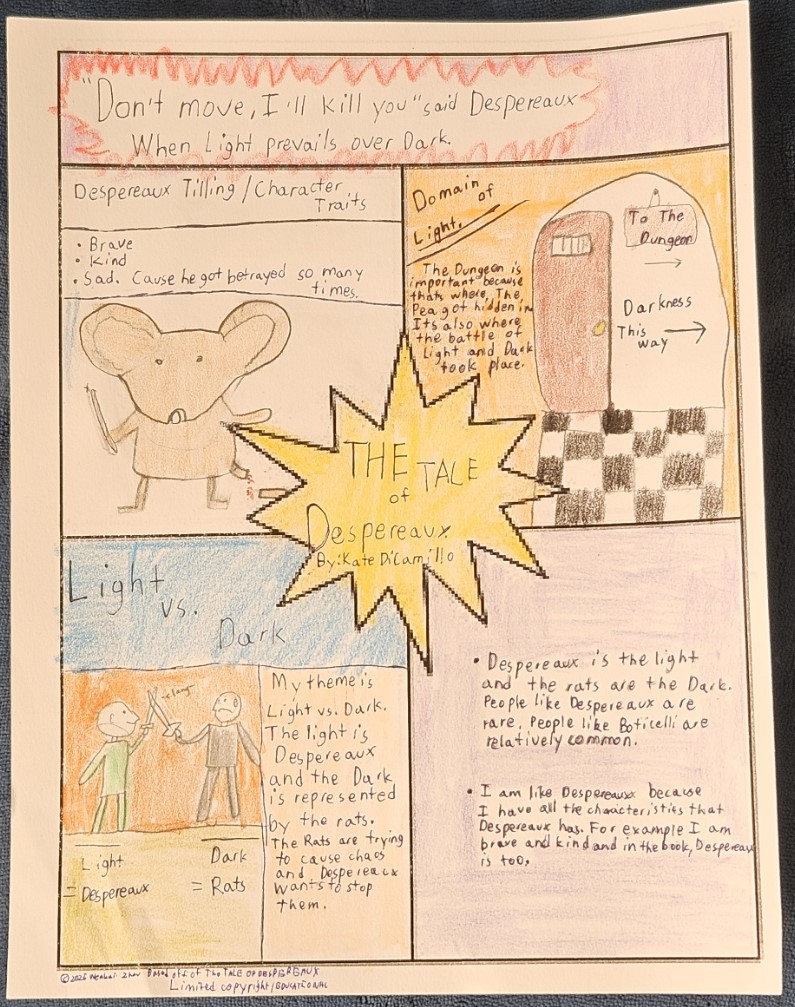 "Don't move, I'll kill you" said Despereaux
When Light prevails over Dark.
Despereaux Tilling/Character
Traits
• Brave
• Kind
• Sad. Cause he got betrayed so many
times.
Domain of
Light.
The Dungeon is
important because
thats where, The
Pea got hidden in
Its also where
the battle of
Light and Dark
took place.
To The
Dungeon
Darkness
This
way
THE TALE
of
Despereaux
By: Kate DiCamillo
Light
vs.
Dark
clang
Light
= Despereaux
Dark
= Rats
My theme is
Light vs. Dark.
The light is
Despereaux
and the Dark
is represented
by the rats.
The Rats are trying
to cause chaos
and Despereaux
wants to stop
them.
• Despereaux is the light
and the rats are the Dark.
People like Despereaux are
rare. People like Boticelli are
relatively common.
• I am like Despereaux because
I have all the characteristics that
Despereaux has. For example I am
brave and kind and in the book, Despereaux
is too.
©2025 Zhou Based off of The TALE OF DESPEREAUX
Limited copyright/EDUCATIONAL